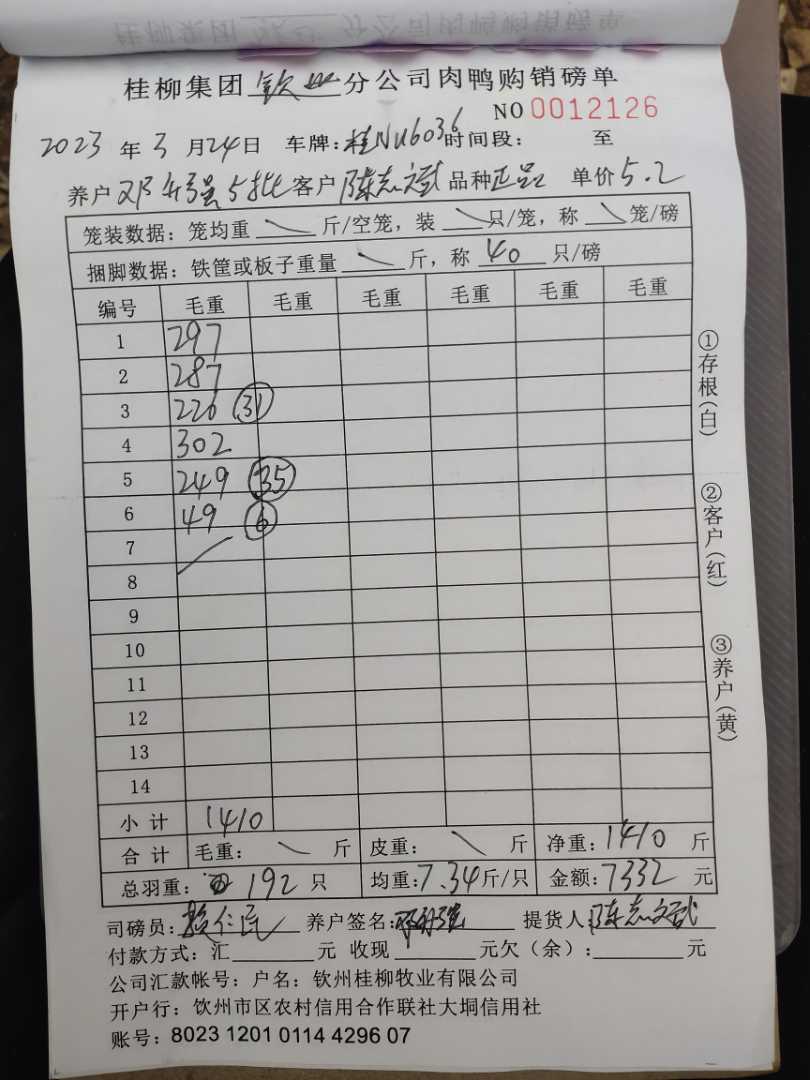 桂柳集团钦州分公司肉鸭购销磅单
NO 0012126
2023年3月24日 车牌:桂NU6036时间段: 至
养户邓 强5批客户陈志斌品种正品 单价5.2
笼装数据:笼均重 \ 斤/空笼,装 \ 只/笼,称 \ 笼/磅
捆脚数据:铁筐或板子重量 \ 斤,称 40 只/磅
编号 毛重 毛重 毛重 毛重 毛重 毛重
1 297
2 287
3 226 (31)
4 302
5 249 (35)
6 49 (6)
7
8
9
10
11
12
13
14
小计 1410
合计 毛重: \ 斤 皮重: \ 斤 净重:1410 斤
总羽重: 192 只 均重:7.34斤/只 金额:7332 元
司磅员:赖仁民 养户签名: 强 提货人:陈志斌
付款方式:汇 元 收现 元欠(余): 元
公司汇款帐号:户名:钦州桂柳牧业有限公司
开户行:钦州市区农村信用合作联社大垌信用社
账号:8023 1201 0114 4296 07
①存根(白)
②客户(红)
③养户(黄)